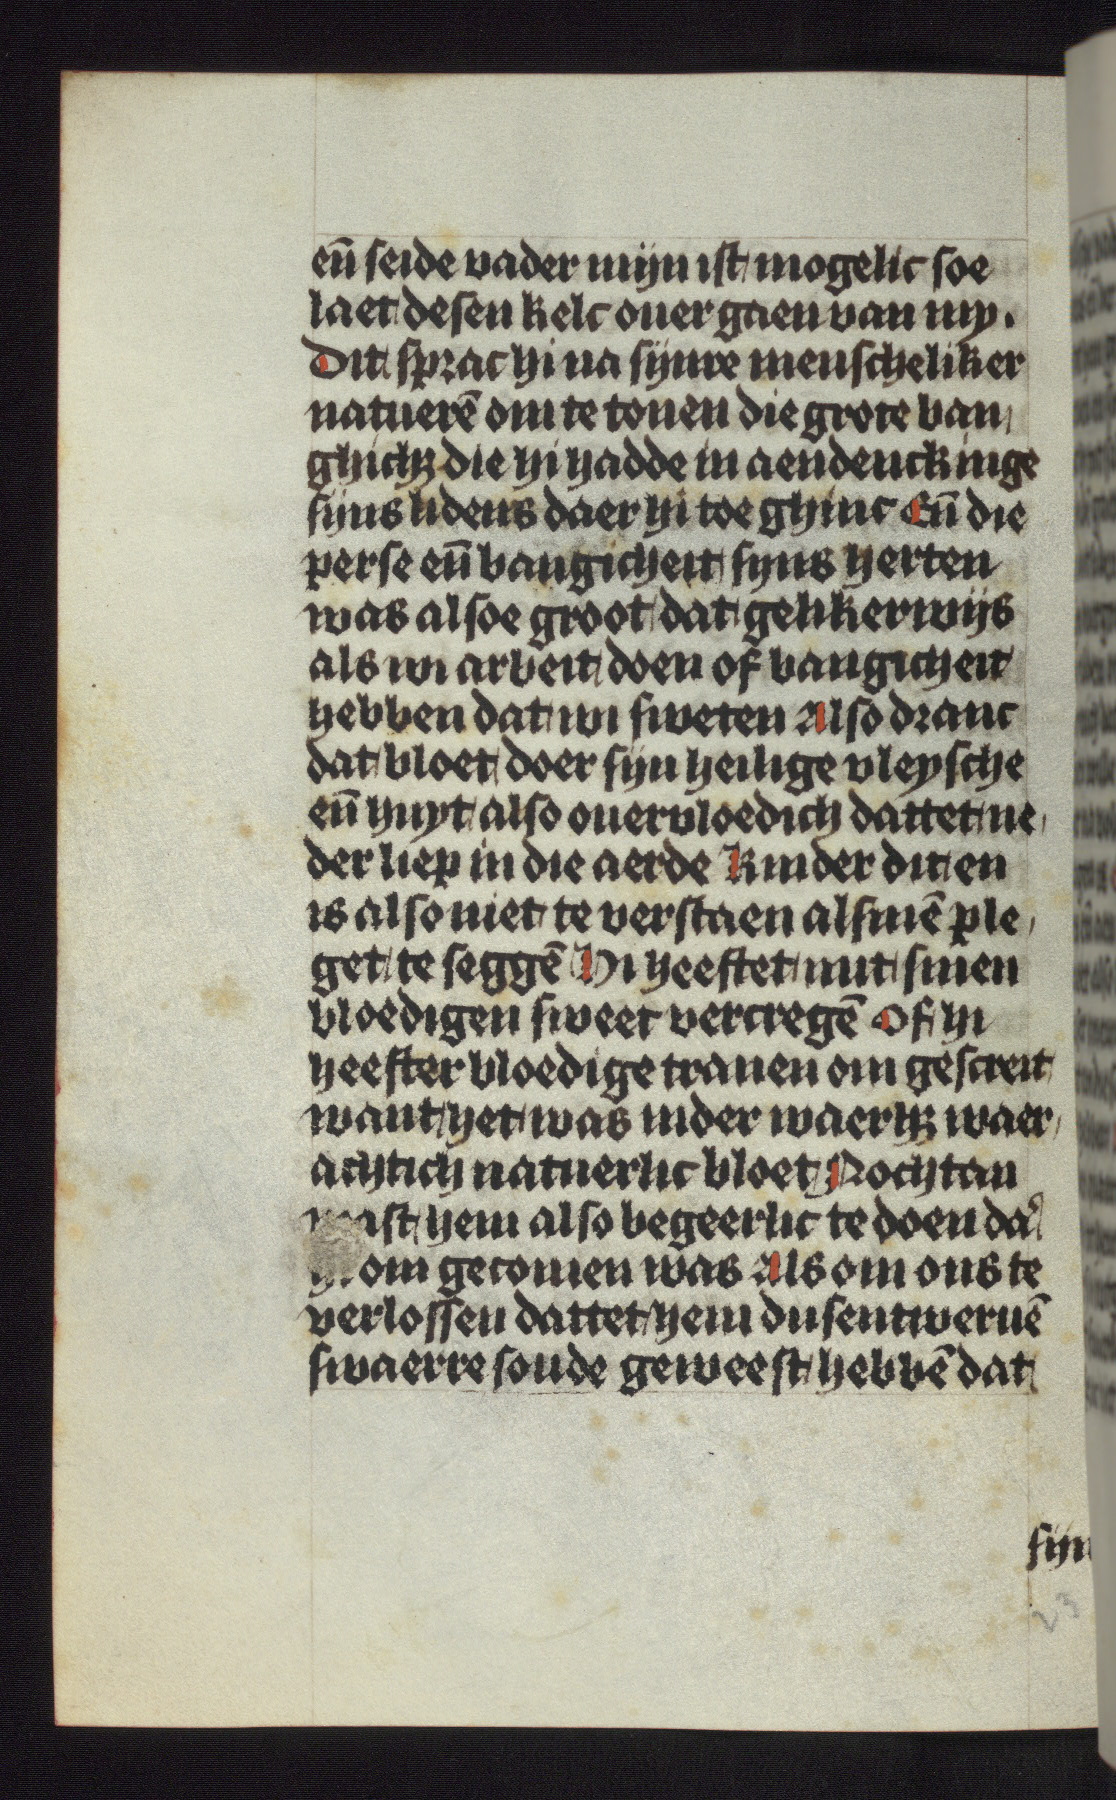 en̄ seide vader mijn ist mogelic soe
laet desen kelc ouer gaen van my.
Dit sprac hi na sijnre menscheliker
natuerē om te tonen die grote ban
ghichz die hi hadde in aendenckinge
sijns lidens daer hi toe ghinc En̄ die
perse en̄ bangicheit sijns herten
was alsoe groot dat gelikerwijs
als wi arbeit doen of bangicheit
hebben dat wi sweten Also dranc
dat bloet doer sijn heilige vleysche
en̄ huyt also ouervloedich dattet ne
der liep in die aerde Kinder dit en
is also niet te verstaen alsmē ple
get te seggē Hi heeftet mit sinen
bloedigen sweet vercregē Of hi
heefter bloedige tranen om gescreit
want het was inder waerhz waer
achtich natuerlic bloet Nochtan
wast hem also begeerlic te doen daͬ
hi om gecomen was Als om ons te
verlossen dattet hem dusentweruē
swaerre soude geweest hebbē dat
sijn
23